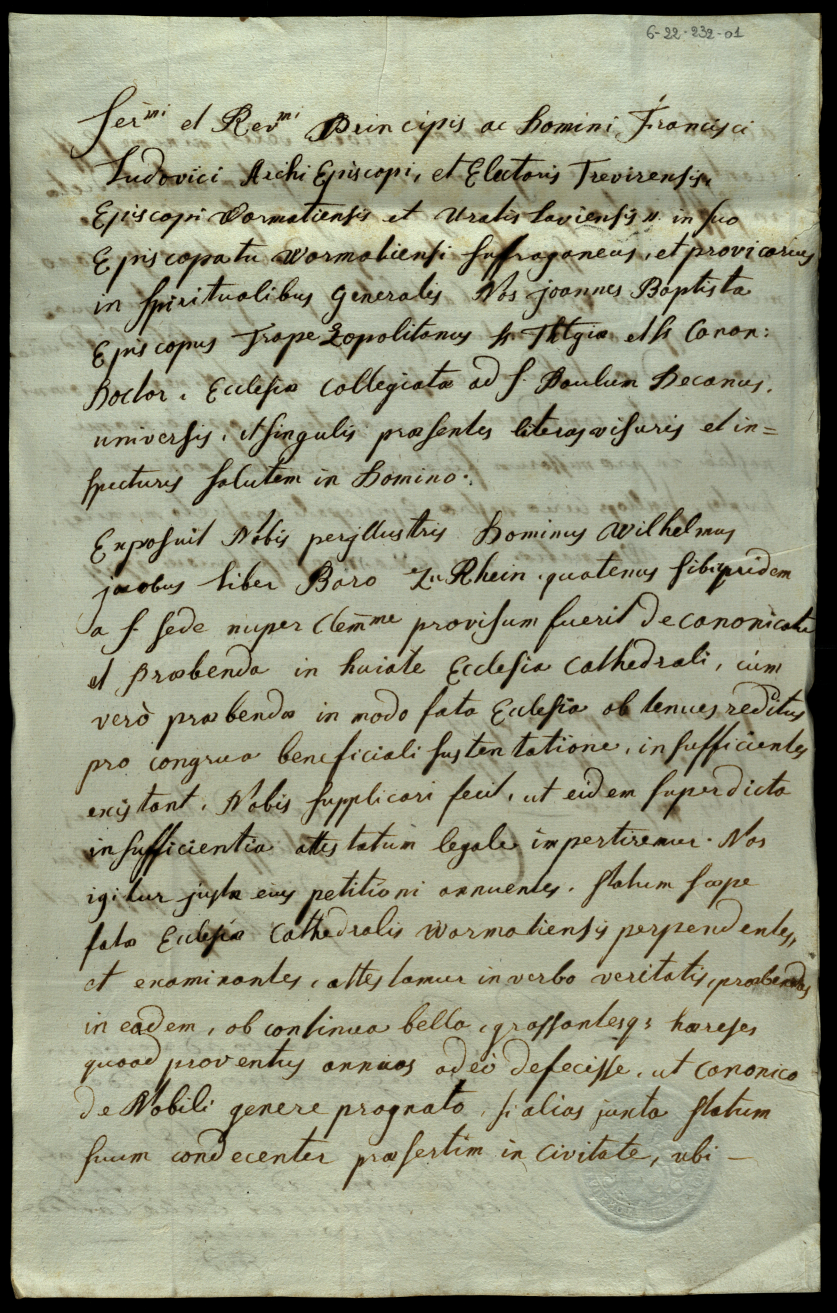 6-22-232-01
Ser.mi et Rev.mi Principis ac Domini, Francisci
Ludovici Archi Episcopi, et Electoris Trevirensis,
Episcopi Wormatiensis et Uratislaviensis in suo
Episcopatu Wormatiensi suffraganeus, et provicarius
in spiritualibus Generalis Nos joannes Baptista
Episcopus Trapezopolitanus ss Thlgiæ et ss Canon:
Doctor, Ecclesiæ Collegiatæ ad S. Paulum Decanus,
universis, et singulis præsentes literas visuris et in=
specturis salutem in Domino:
Exposuit Nobis perjllustris Dominus Wilhelmus
jacobus liber Baro Zu Rhein, quatenus sibi pridem
a S. Sede nuper Clem̄me provisum fuerit de canonicatu
et Præbenda in huiate Ecclesia Cathedrali, cùm
verò præbendæ in modo fata Ecclesia ob tenues reditus
pro congrua beneficiali sustentatione, insufficientes
existant, Nobis supplicari fecit, ut eidem superdicta
insufficientia attestatum legale impertiremur. Nos
igitur justæ eius petitioni annuentes, statum sæpe
fatæ Ecclesiæ Cathedralis Wormatiensis perpendentes,
et examinantes, attestamur in verbo veritatis, præbendas
in eadem, ob continua bella, grassantesq; hæreses
quoad proventus annuos adeò defecisse, ut canonico
de Nobili genere prognato, si alias juxta statum
suum condecenter præsertim in Civitate, ubi –